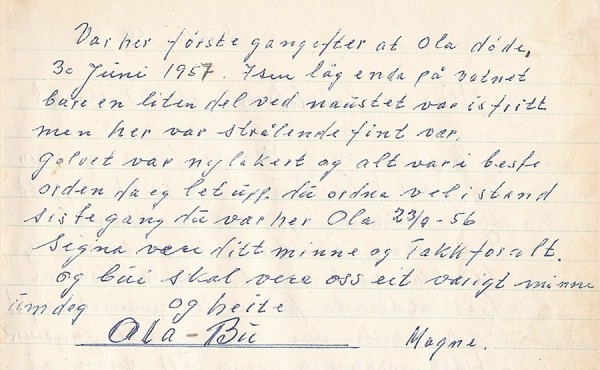 Var her første gang efter at Ola døde,
30 Juni 1957. Isen låg enda på vatnet
bare en liten del ved naustet var isfritt
men her var strålende fint vær.
Golvet var nylakert og alt var i beste
orden da eg let upp. dú ordna vel istand
siste gang dú var her Ola 23/9 - 56
Segna vere ditt minne og Takk for alt.
og búi skal vere oss eit varigt minne
úm deg og heite
Ola - Bú
Magne.